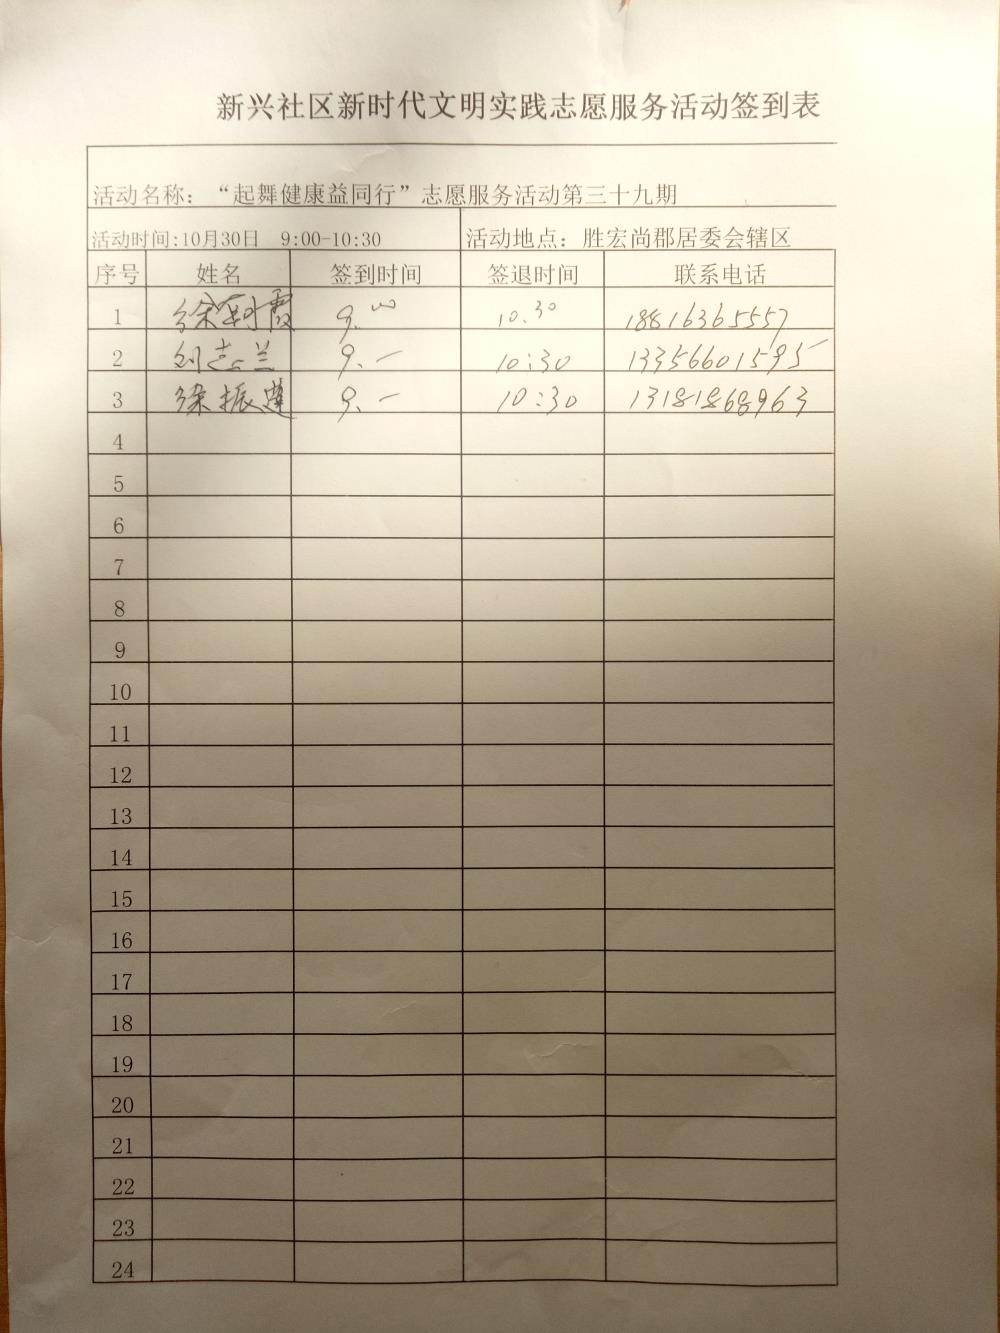 新兴社区新时代文明实践志愿服务活动签到表
活动名称：“起舞健康益同行”志愿服务活动第三十九期
活动时间:10月30日 9:00-10:30 活动地点：胜宏尚郡居委会辖区
序号 姓名 签到时间 签退时间 联系电话
1 徐 霞 9.00 10.30 18816365557
2 刘志兰 9.— 10:30 13356601595
3 徐振莲 9.— 10:30 13181868963
4
5
6
7
8
9
10
11
12
13
14
15
16
17
18
19
20
21
22
23
24